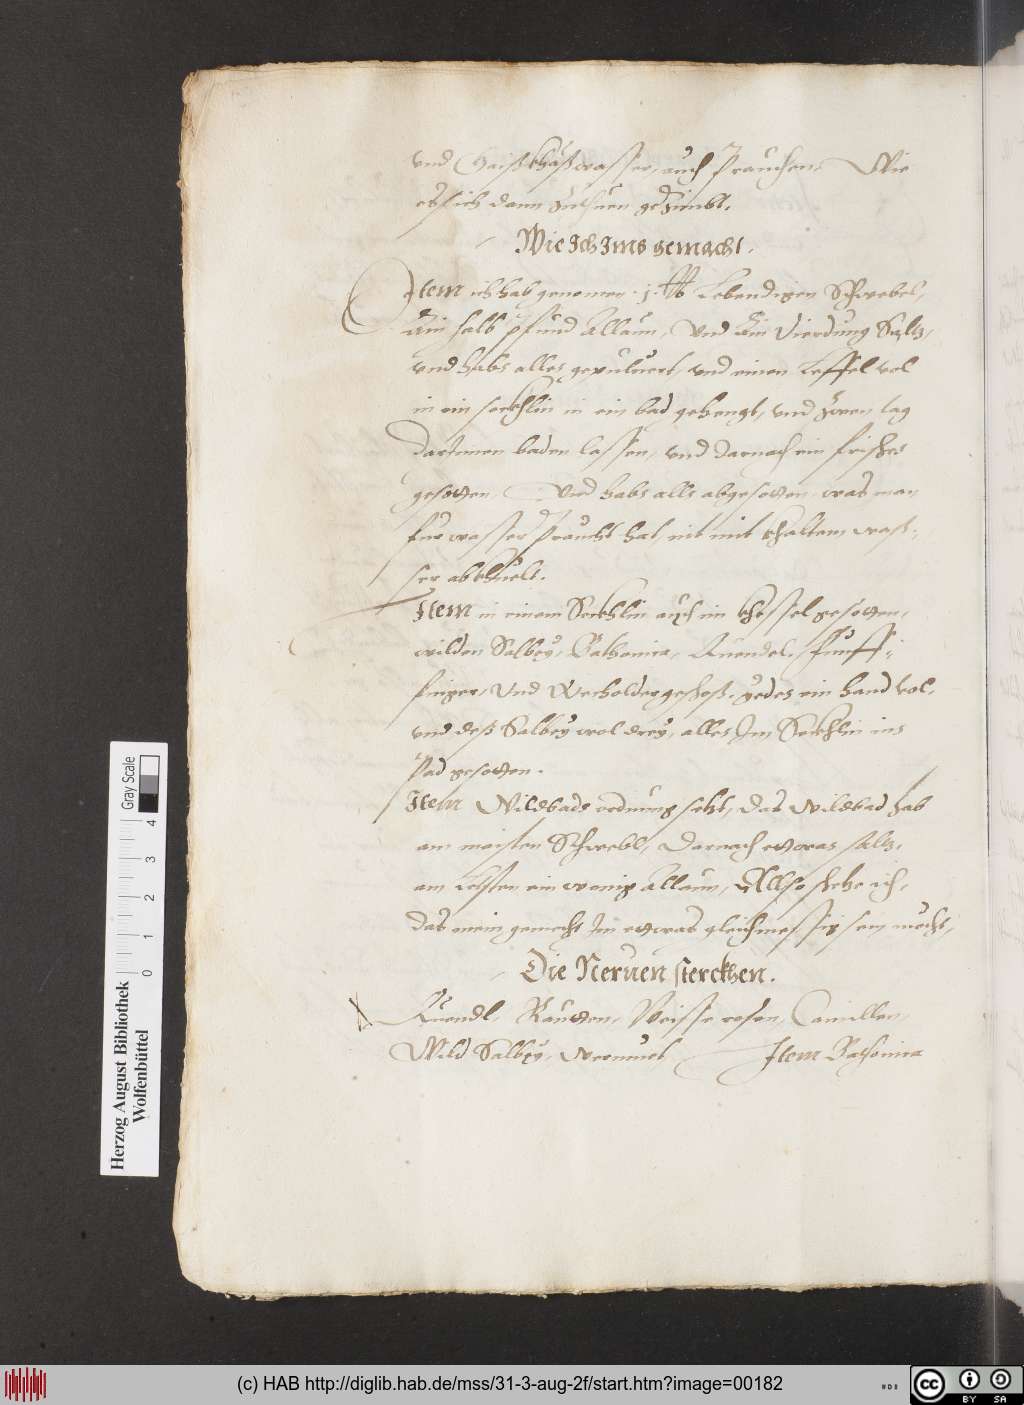 und Gaißkhäßwasser, auch prauchen. Wie
es sich dann zuthuen gezimbt.
Wie Ich Ims gemacht.
Item ich hab genomen .j. ℔ Lebendigen Schwebel,
Ain halb pfund Allaun, Und Ain Vierdung Saltz,
und habs alles gepuluert, und einen Leffel vol
in ein seckhlin in ein bad gehengt, und zwen tag
darinnen baden lassen, und darnach ein frisches
gesotten, Und habs alls abgesotten, was man
für wasser praucht hat, nit mit khaltem waß-
ser abkhuelt.
Item in einem Seckhlin auch im khessel gesotten,
wilden Salbey, Bathonica, Quendel, fünff-
finger, Und Wecholdergeschoß, yedes ein hand vol,
und deß Salbey wol drey, alles Im Seckhlin ins
Pad gesotten.
Item Wildbads ordnung setzt, das Wildbad hab
am maisten Schwebl, Darnach ettwas saltz,
am Letsten ein wenig Allaun, Allso stehe ich,
das mein gemecht Im ettwas gleichmessig sein möcht,
Die Neruen sterckhen.
Quendl, Rautten, Weisse rosen, Camillen,
Wild Salbey, Wermuet Item Bathonica
Herzog August Bibliothek
Wolfenbüttel
Gray Scale
0 1 2 3 4
(c) HAB http://diglib.hab.de/mss/31-3-aug-2f/start.htm?image=00182
cc BY SA